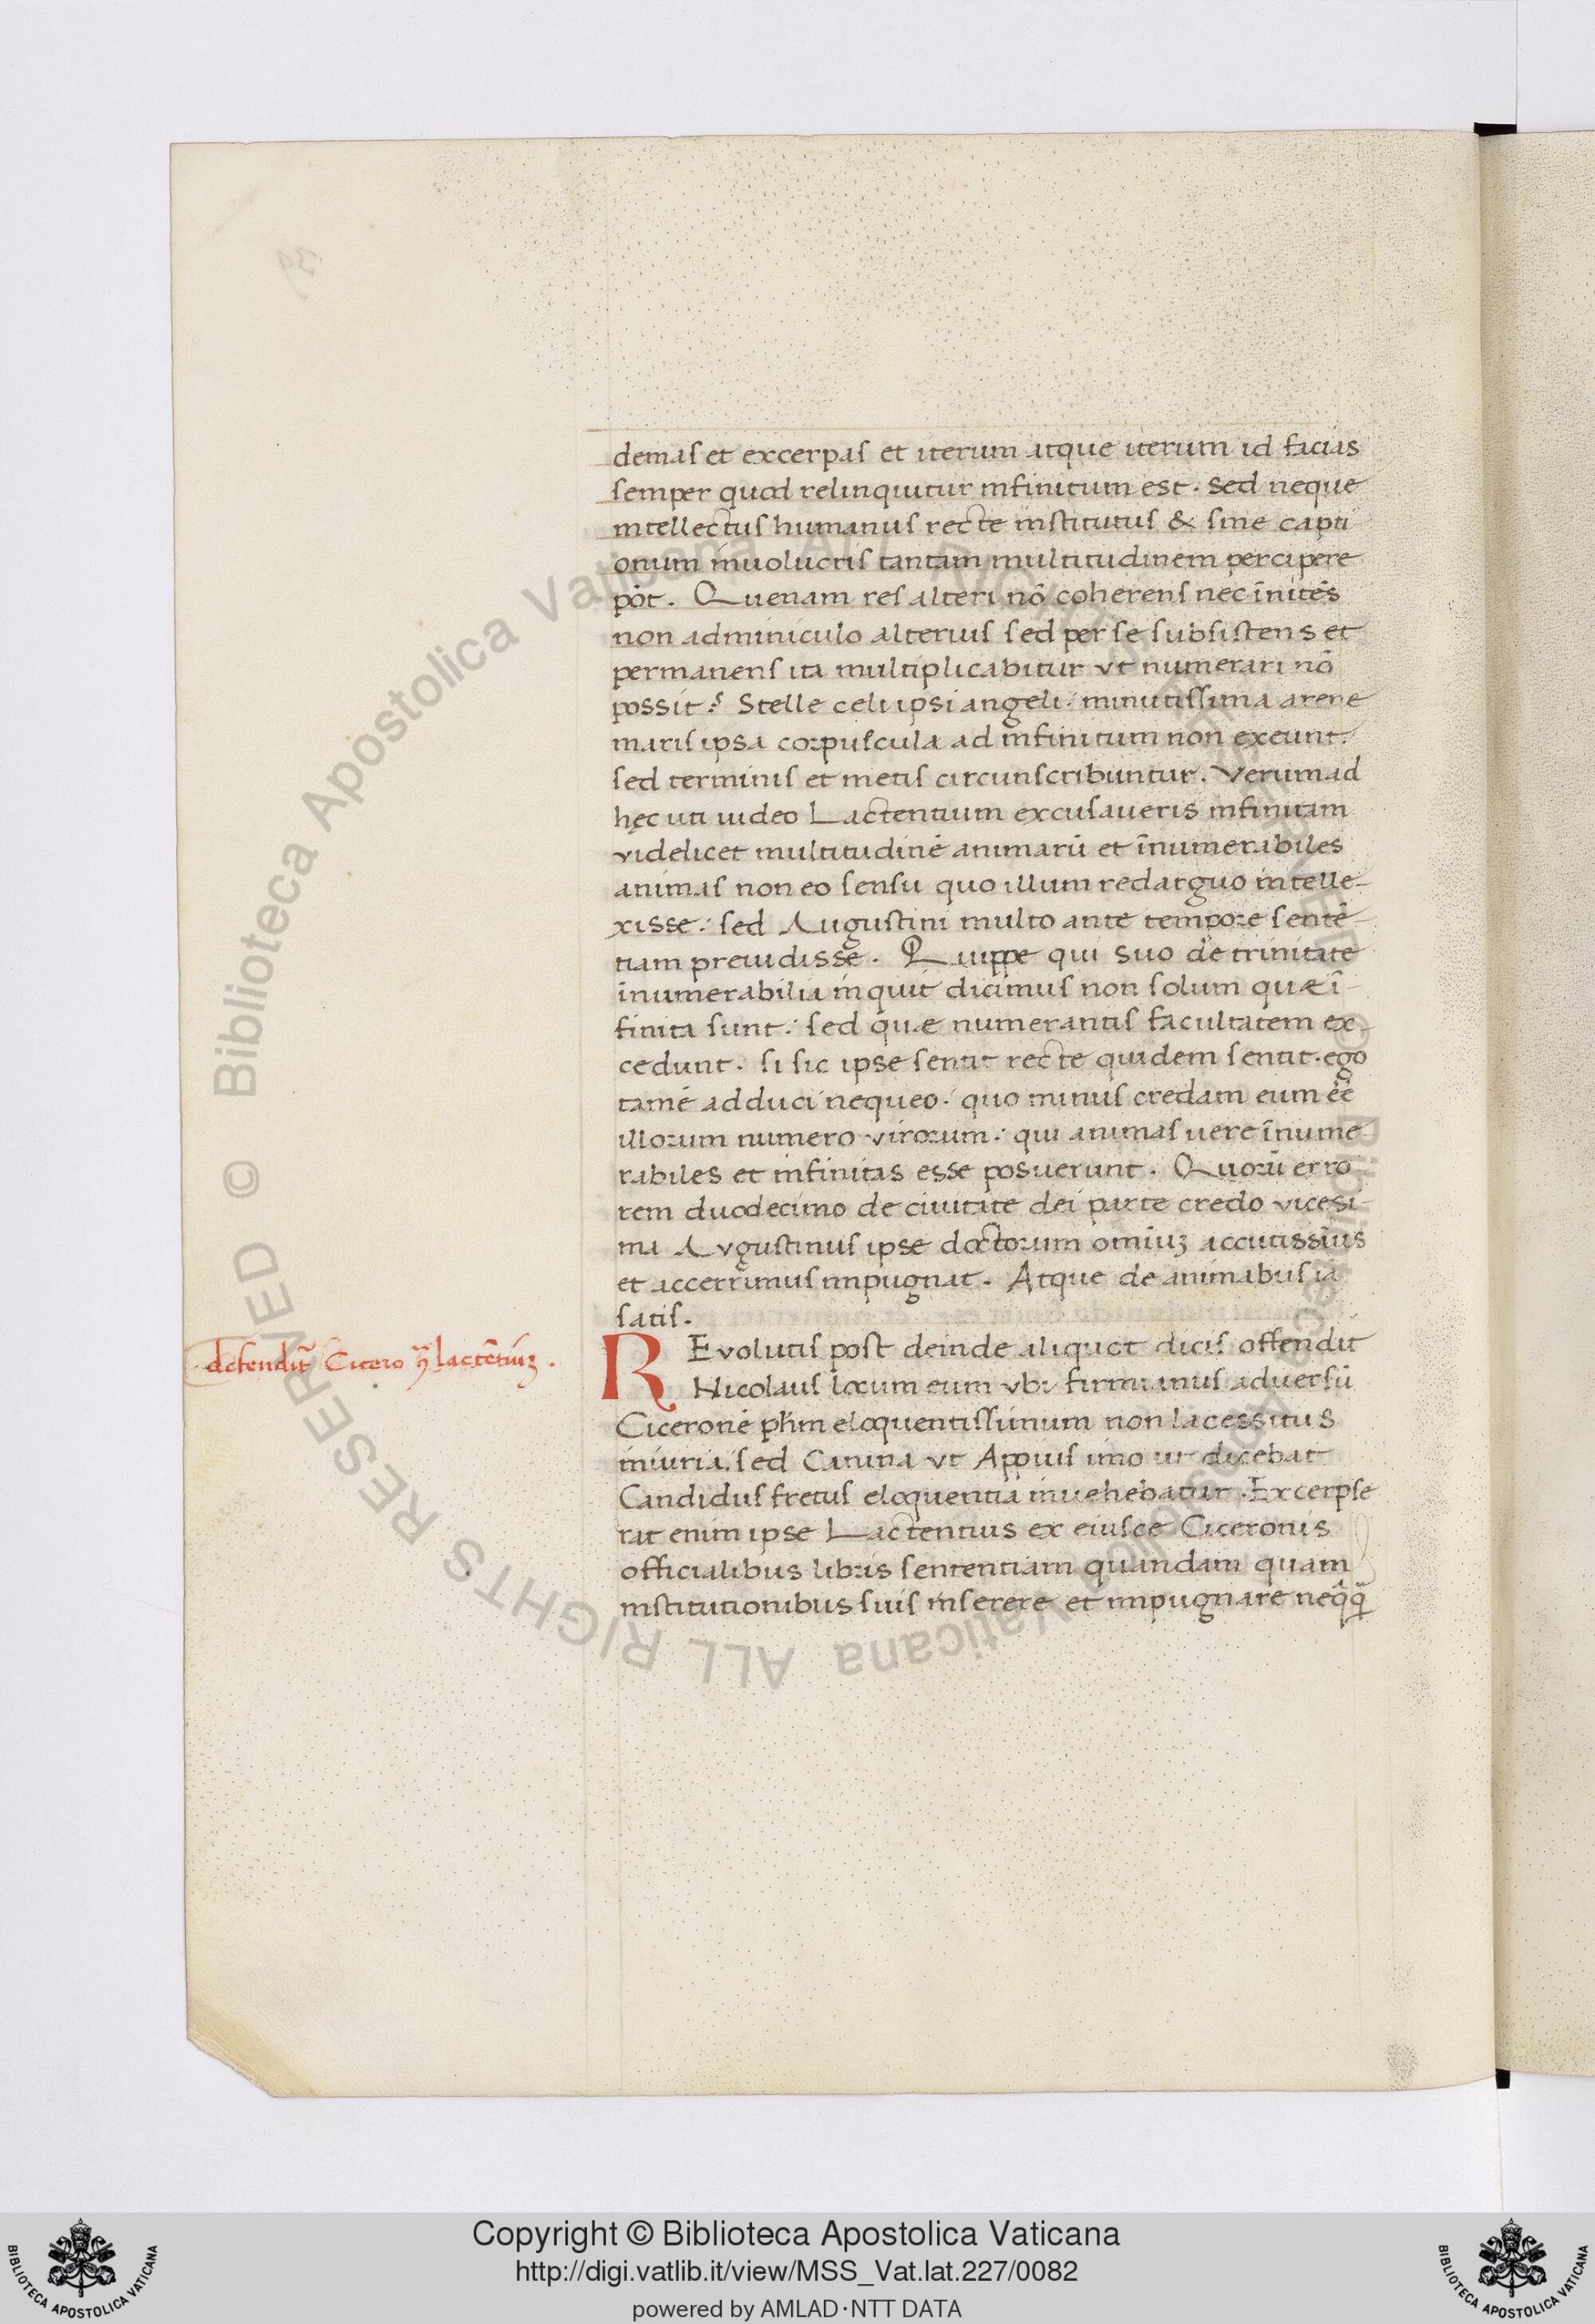 demas et excerpas et iterum atque iterum id facias
semper quod relinquitur infinitum est. Sed neque
intellectus humanus recte institutus & sine capti
onum inuolucris tantam multitudinem percipere
pōt. Quenam res alteri nō coherens nec īnitēs
non adminiculo alterius sed per se subsistens et
permanens ita multiplicabitur vt numerari nō
possit? Stelle celi ipsi angeli: minutissima arene
maris ipsa corpuscula ad infinitum non exeunt:
sed terminis et metis circunscribuntur. Verum ad
hęc uti uideo Lactentium excusaueris infinitam
videlicet multitudinē animarū et īnumerabiles
animas non eo sensu quo illum redarguo intelle-
xisse: sed Augustini multo ante tempore sentē-
tiam preuidisse. Quippe qui suo de trinitate
īnumerabilia inquit dicimus non solum quæ ī-
finita sunt: sed quæ numerantis facultatem ex-
cedunt. si sic ipse sentit recte quidem sentit. ego
tamē adduci nequeo: quo minus credam eum ēē
illorum numero virorum: qui animas uere īnume-
rabiles et infinitas esse posuerunt. Quorū erro-
rem duodecimo de ciuitate dei parte credo vicesi-
ma Avgustinus ipse doctorum omīuꝫ accutissīus
et accerrimus impugnat. Atque de animabus iā
satis.
defendit̄ Cicero ꝯ̄ lactētiuꝫ.
REvolutis post deinde aliquot dieis offendit
Nicolaus locum eum vbi firmianus aduersū
Ciceronē pħm eloquentissimum non lacessitus
iniuria: sed Canina vt Appius imo ut dicebat
Candidus fretus eloquentia inuehebatur. Excerpse
rat enim ipse Lactentius ex eiusce Ciceronis
officialibus libris sententiam quandam quam
institutionibus suis inserere et impugnare neq̄q̄
Copyright © Biblioteca Apostolica Vaticana
http://digi.vatlib.it/view/MSS_Vat.lat.227/0082
powered by AMLAD·NTT DATA
BIBLIOTECA APOSTOLICA VATICANA
BIBLIOTECA APOSTOLICA VATICANA
© Biblioteca Apostolica Vaticana ALL RIGHTS RESERVED
© Biblioteca Apostolica Vaticana ALL RIGHTS RESERVED